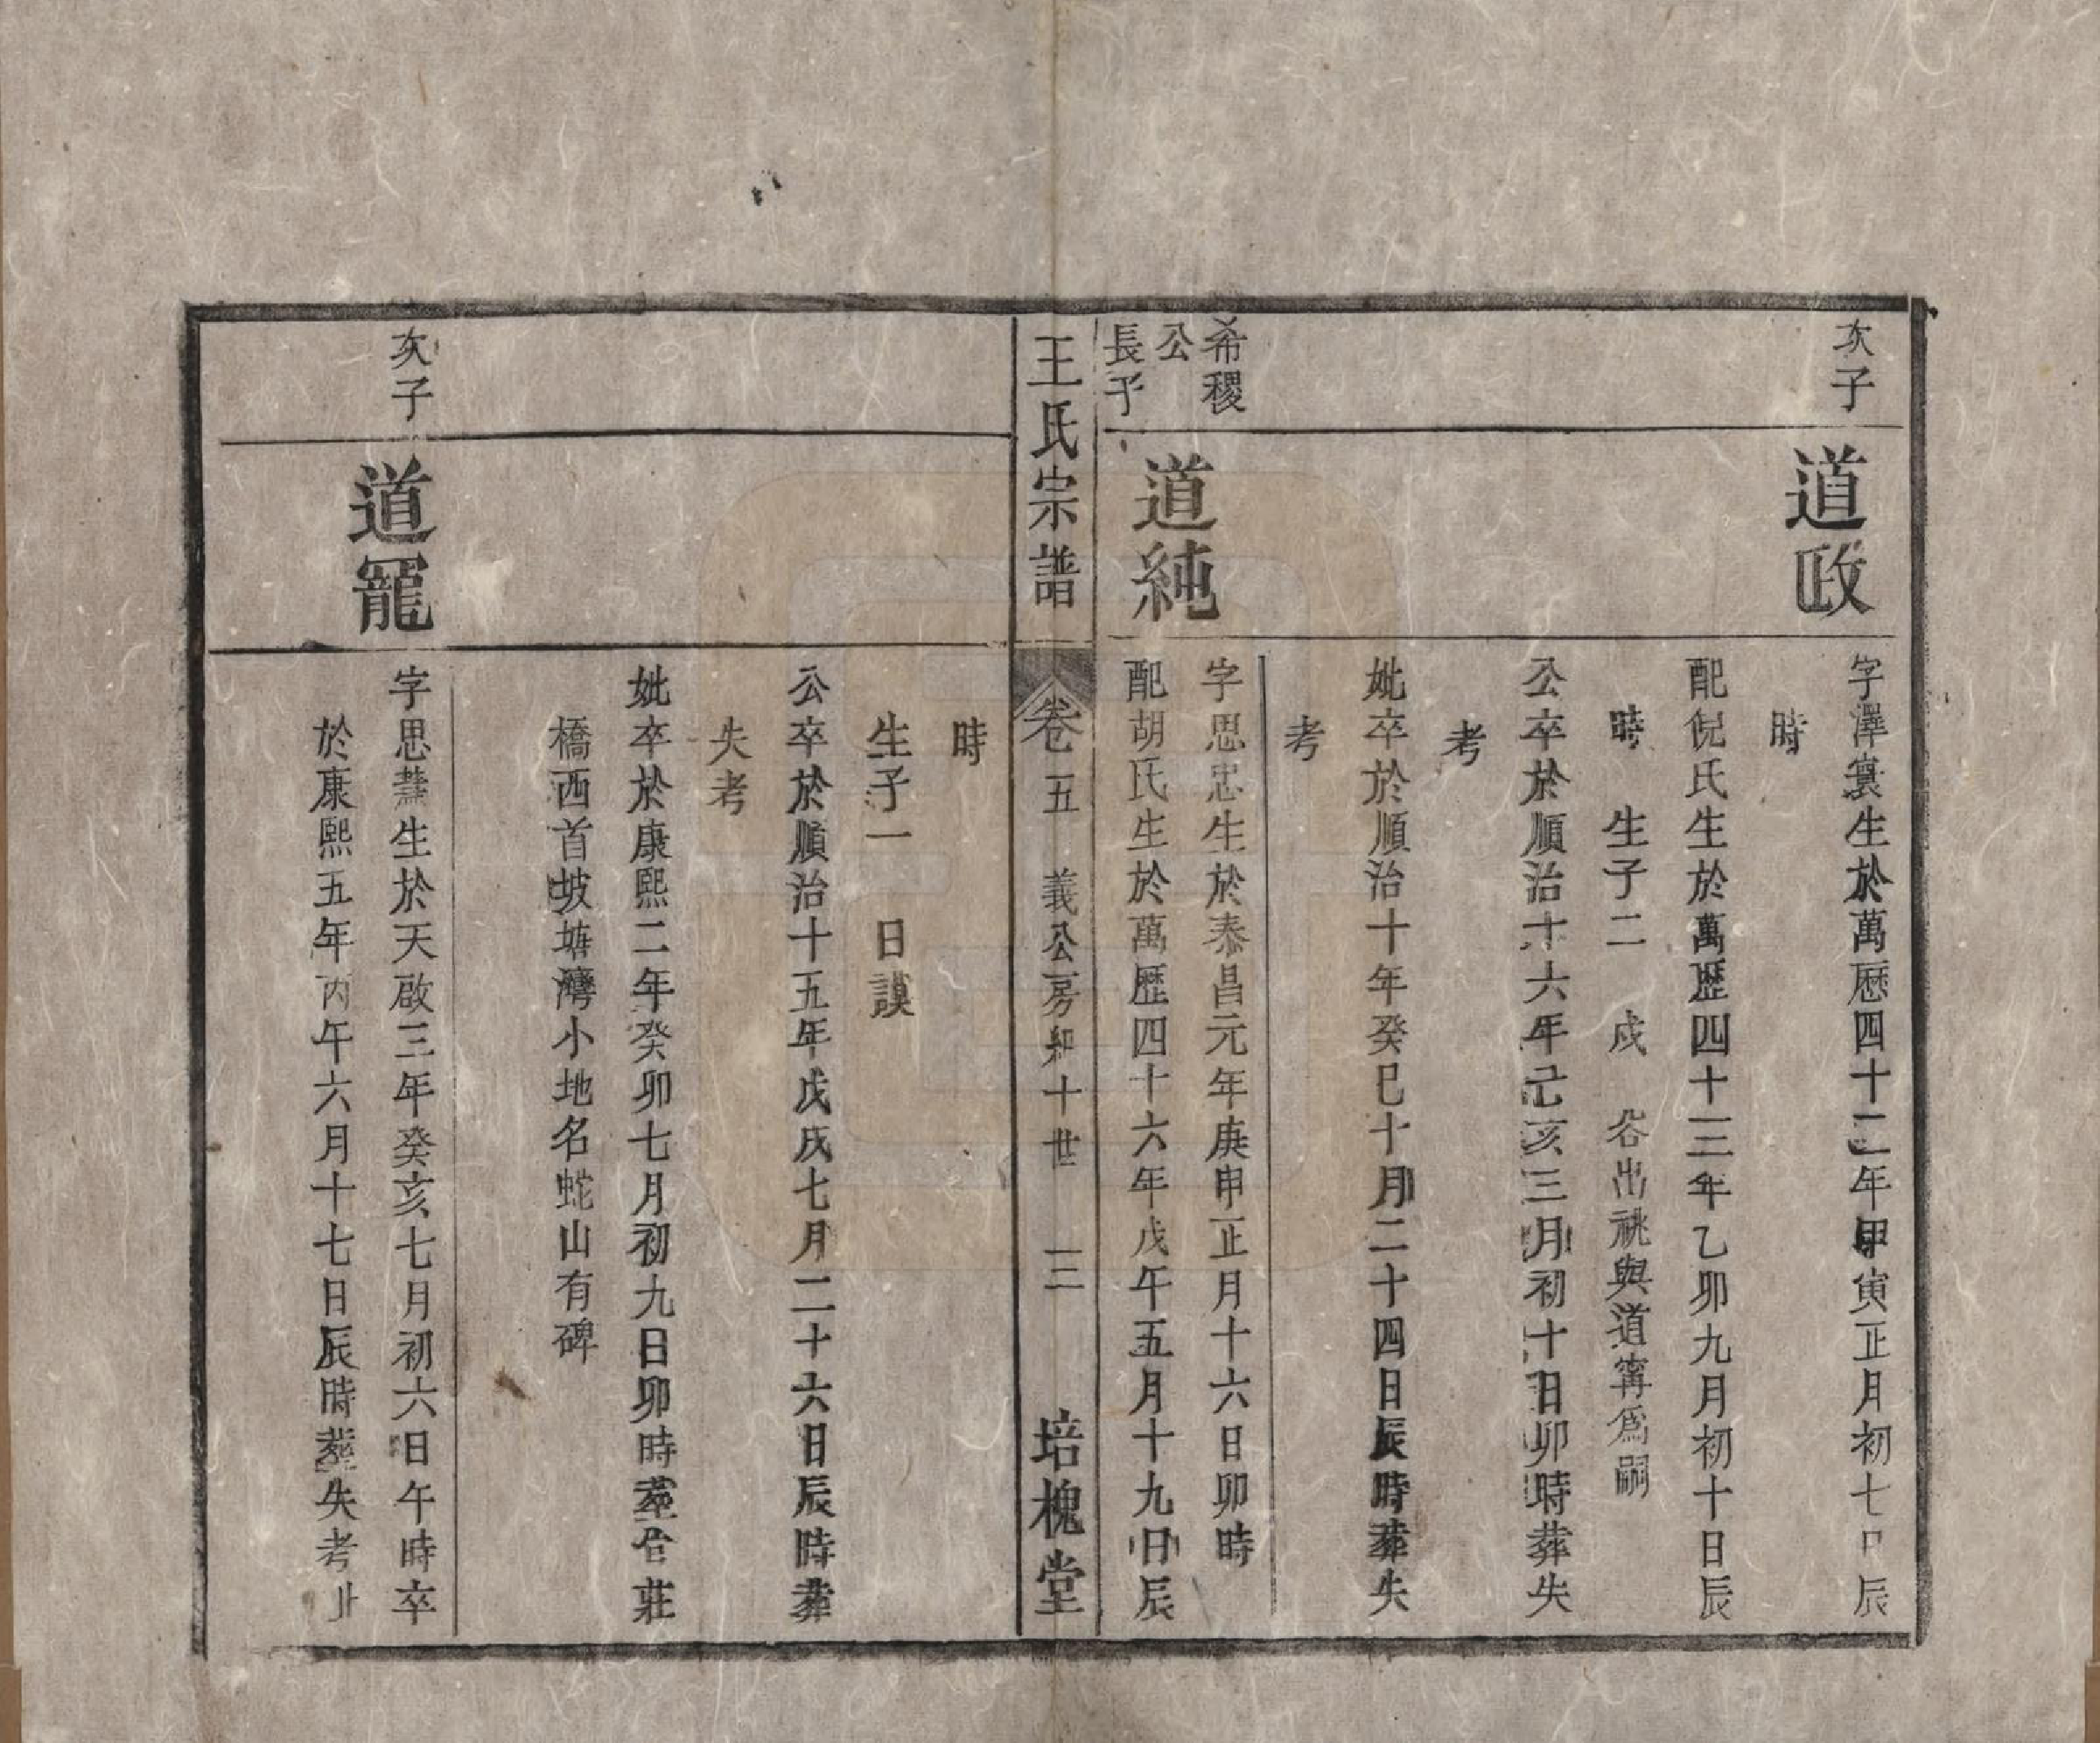 次子
道政
字澤寰生於萬歷四十二年甲寅正月初七日辰
時
配倪氏生於萬歷四十三年乙卯九月初十日辰
時 生子二 成 谷出祧與道寧爲嗣
公卒於順治十六年己亥三月初十日卯時葬失
考
妣卒於順治十年癸巳十月二十四日辰時葬失
考
希稷
公
長子
道純
字思忠生於泰昌元年庚申正月十六日卯時
配胡氏生於萬歷四十六年戊午五月十九日辰
王氏宗譜 卷五 義公房 十世 三 培槐堂
時
生子一 日謨
公卒於順治十五年戊戌七月二十六日辰時葬
失考
妣卒於康熙二年癸卯七月初九日卯時葬合莊
橋西首坡塘灣小地名蛇山有碑
次子
道寵
字思 生於天啟三年癸亥七月初六日午時卒
於康熙五年丙午六月十七日辰時葬失考